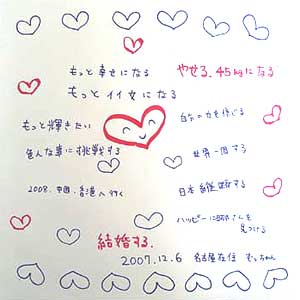 もっと幸せになる
やせる。45kgになる
もっとイイ女になる
自分の力を信じる
もっと輝きたい
色んな事に挑戦する
世界一周する
2008. 中国、香港へ行く
日本縦断する
ハッピーに
見つける
結婚する。
2007.12.6 名古屋在住